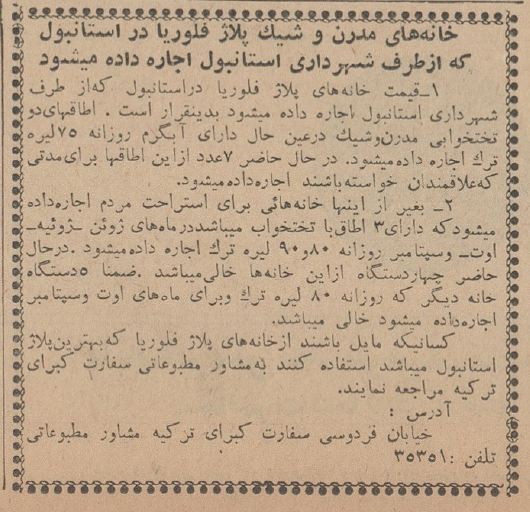 خانه‌های مدرن و شیك پلاژ فلوریا در استانبول
که ازطرف شهرداری استانبول اجاره داده میشود
۱ـ قیمت خانه‌های پلاژ فلوریا دراستانبول که‌از طرف
شهرداری استانبول اجاره داده میشود بدینقرار است . اطاقهای‌دو
تختخوابی مدرن‌وشیك درعین حال دارای آبگرم روزانه ۷۵لیره
ترك اجاره داده‌میشود. در حال حاضر ۷عدد ازاین اطاقها برای‌مدتی
که‌علاقمندان خواسته‌باشند اجاره‌داده‌میشود.
۲ـ بغیر از اینها خانه‌هائی برای استراحت مردم اجاره‌داده
میشودکه دارای۳ اطاق‌با تختخواب میباشددرماه‌های ژوئن ـ‌ژوئیه‌ـ
اوت‌ـ وسپتامبر روزانه ۸۰و۹۰ لیره ترك اجاره داده‌میشود .درحال
حاضر چهاردستگاه ازاین خانه‌ها خالی‌میباشد .ضمنا ۵دستگاه
خانه دیگر که روزانه ۸۰ لیره ترك وبرای ماه‌های اوت وسپتامبر
اجاره‌داده میشود خالی میباشد.
کسانیکه مایل باشند ازخانه‌های پلاژ فلوریا که‌بهترین‌پلاژ
استانبول میباشد استفاده کنند به‌مشاور مطبوعاتی سفارت کبرای
ترکیه مراجعه نمایند.
آدرس :
خیابان فردوسی سفارت کبرای ترکیه مشاور مطبوعاتی
تلفن :۳۵۳۵۱